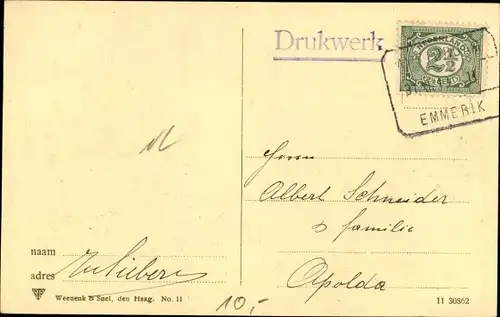 Drukwerk
NEDERLAND
2½
CENT
EMMERIK
Herrn
Albert Schneider
& familie
Apolda
naam
adres
Weenenk & Snel, den Haag. No. 11
10,-
11 30862